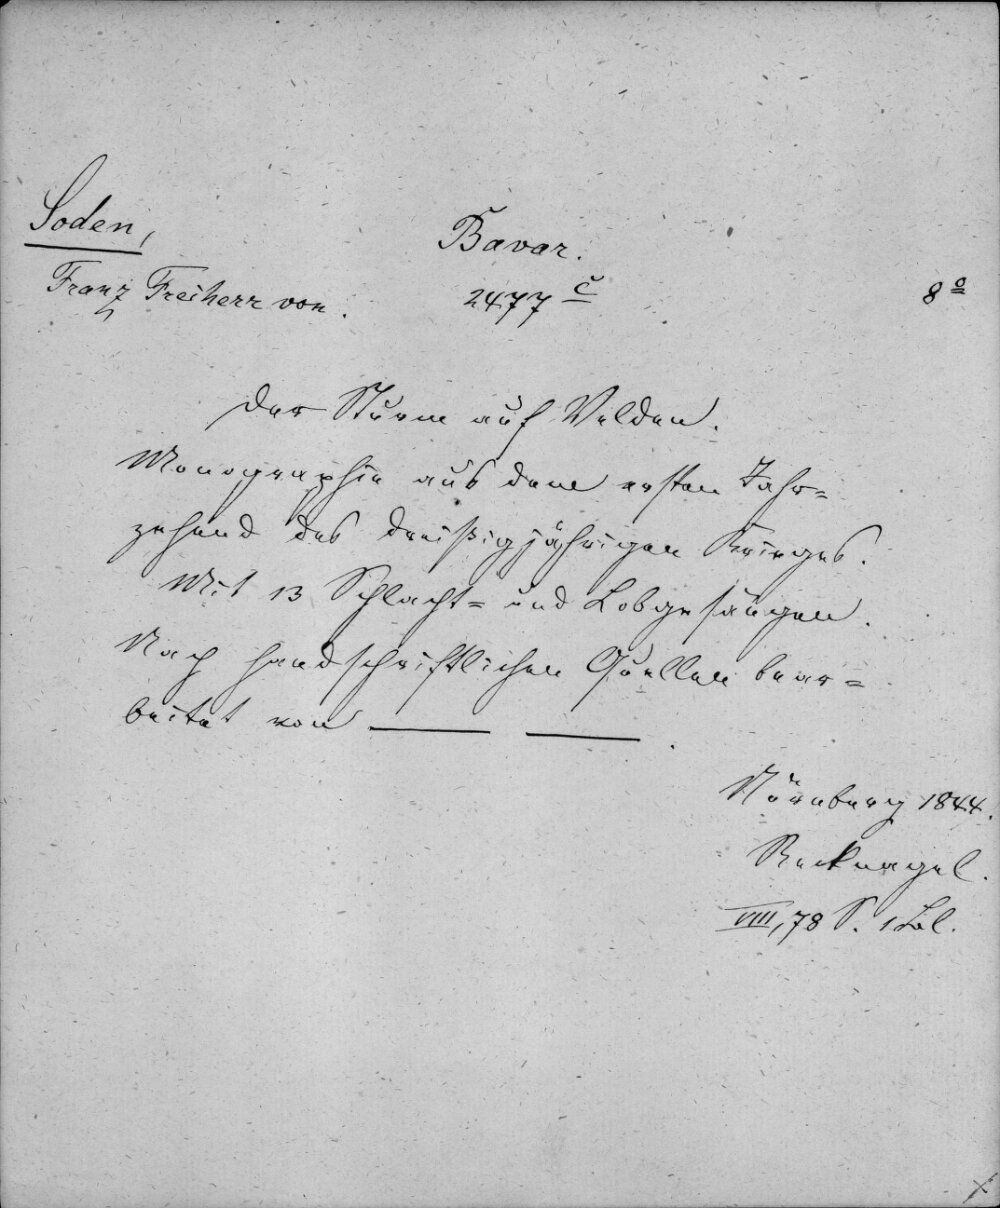 Soden,
Bavar.
Franz Freiherr von.
2477 c
8o
Der Sturm auf Velden.
Monographie aus dem ersten Jahr=
zehend des dreißigjährigen Krieges.
Mit 13 Schlacht= und Lobgesängen.
Nach handschriftlichen Quellen bear=
beitet von — — .
Nürnberg 1844.
Recknagel.
VIII, 78 S. 1 Bl.